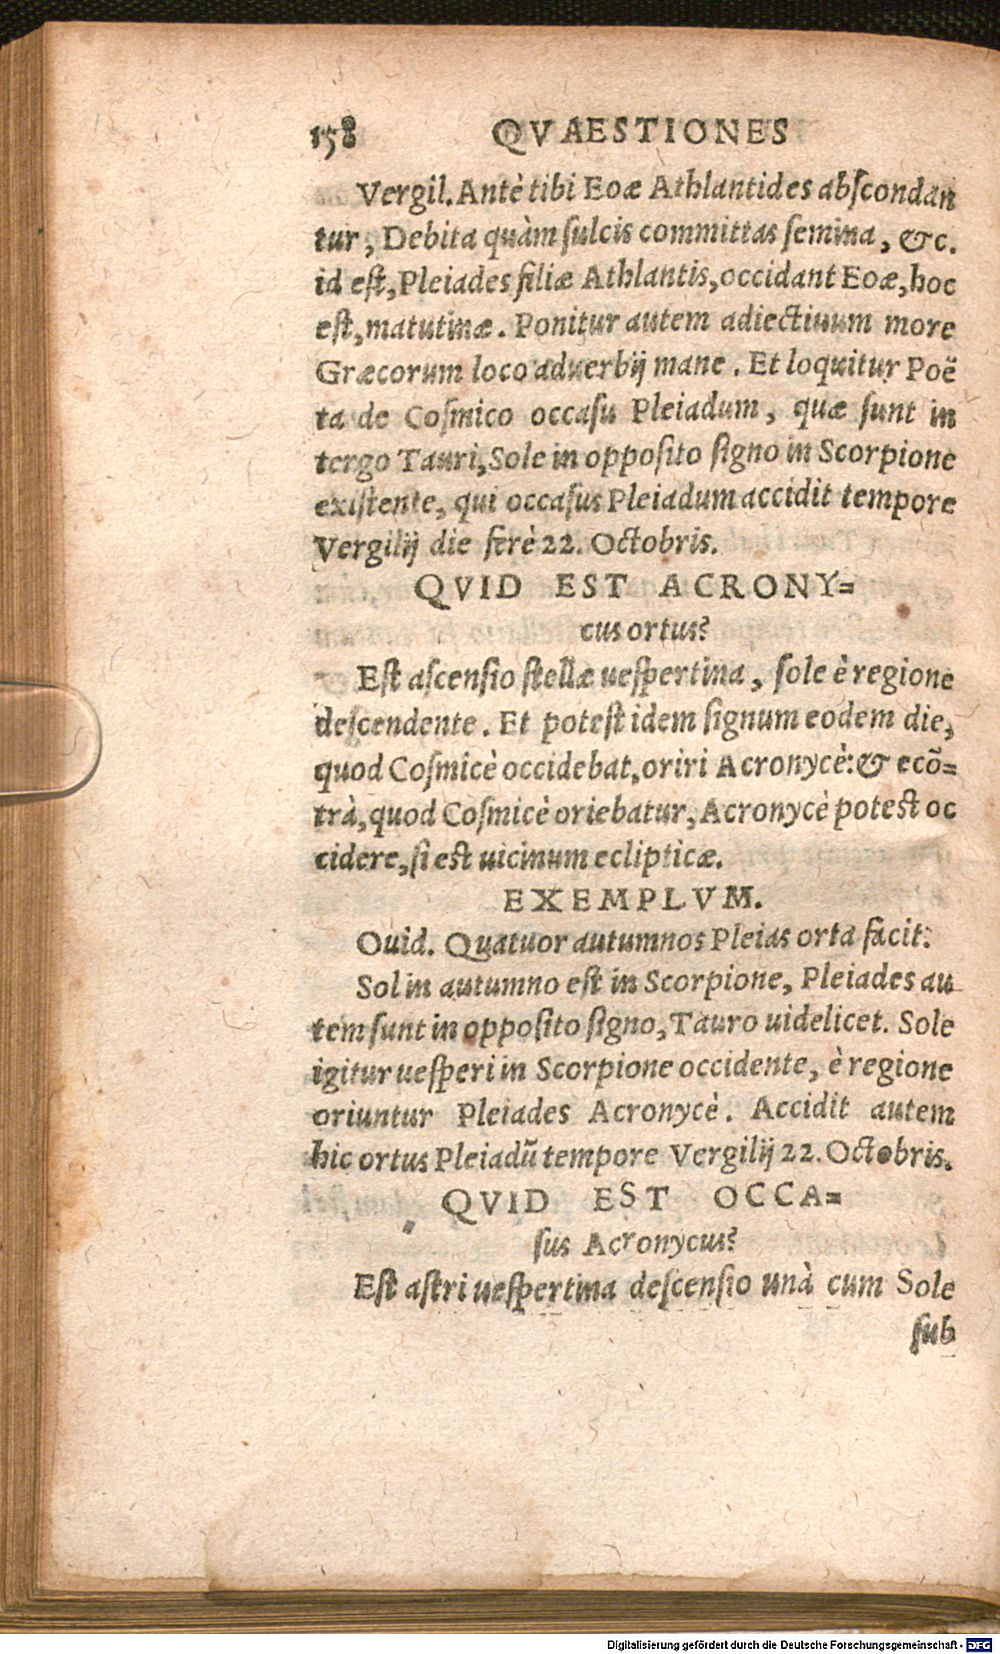 158 QVAESTIONES
Vergil. Antè tibi Eoæ Athlantides abſcondan
tur, Debita quàm ſulcis committas ſemina, &c.
id eſt, Pleiades filiæ Athlantis, occidant Eoæ, hoc
eſt, matutinæ. Ponitur autem adiectiuum more
Græcorum loco aduerbij mane. Et loquitur Poë
ta de Coſmico occaſu Pleiadum, quæ ſunt in
tergo Tauri, Sole in oppoſito ſigno in Scorpione
exiſtente, qui occaſus Pleiadum accidit tempore
Vergilij die ferè 22. Octobris.
QVID EST ACRONY=
cus ortus?
Eſt aſcenſio ſtellæ ueſpertina, ſole è regione
deſcendente. Et poteſt idem ſignum eodem die,
quod Coſmicè occidebat, oriri Acronycè: & ecō=
trà, quod Coſmicè oriebatur, Acronycè poteſt oc
cidere, ſi eſt uicinum eclipticæ.
EXEMPLVM.
Ouid. Quatuor autumnos Pleias orta facit:
Sol in autumno eſt in Scorpione, Pleiades au
tem ſunt in oppoſito ſigno, Tauro uidelicet. Sole
igitur ueſperi in Scorpione occidente, è regione
oriuntur Pleiades Acronycè. Accidit autem
hic ortus Pleiadū tempore Vergilij 22. Octobris.
QVID EST OCCA=
ſus Acronycus?
Eſt aſtri ueſpertina deſcenſio unà cum Sole
ſub
Digitalisierung gefördert durch die Deutsche Forschungsgemeinschaft - DFG